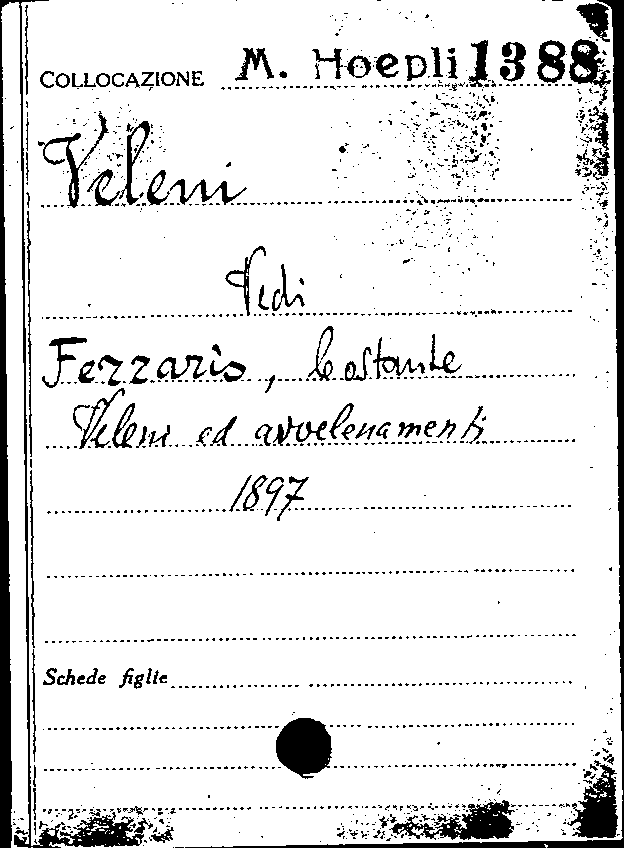 COLLOCAZIONE M. Hoepli 1388
Veleni
Vedi
Ferraris, Costante
Veleni ed avvelenamenti
1897
Schede figlie